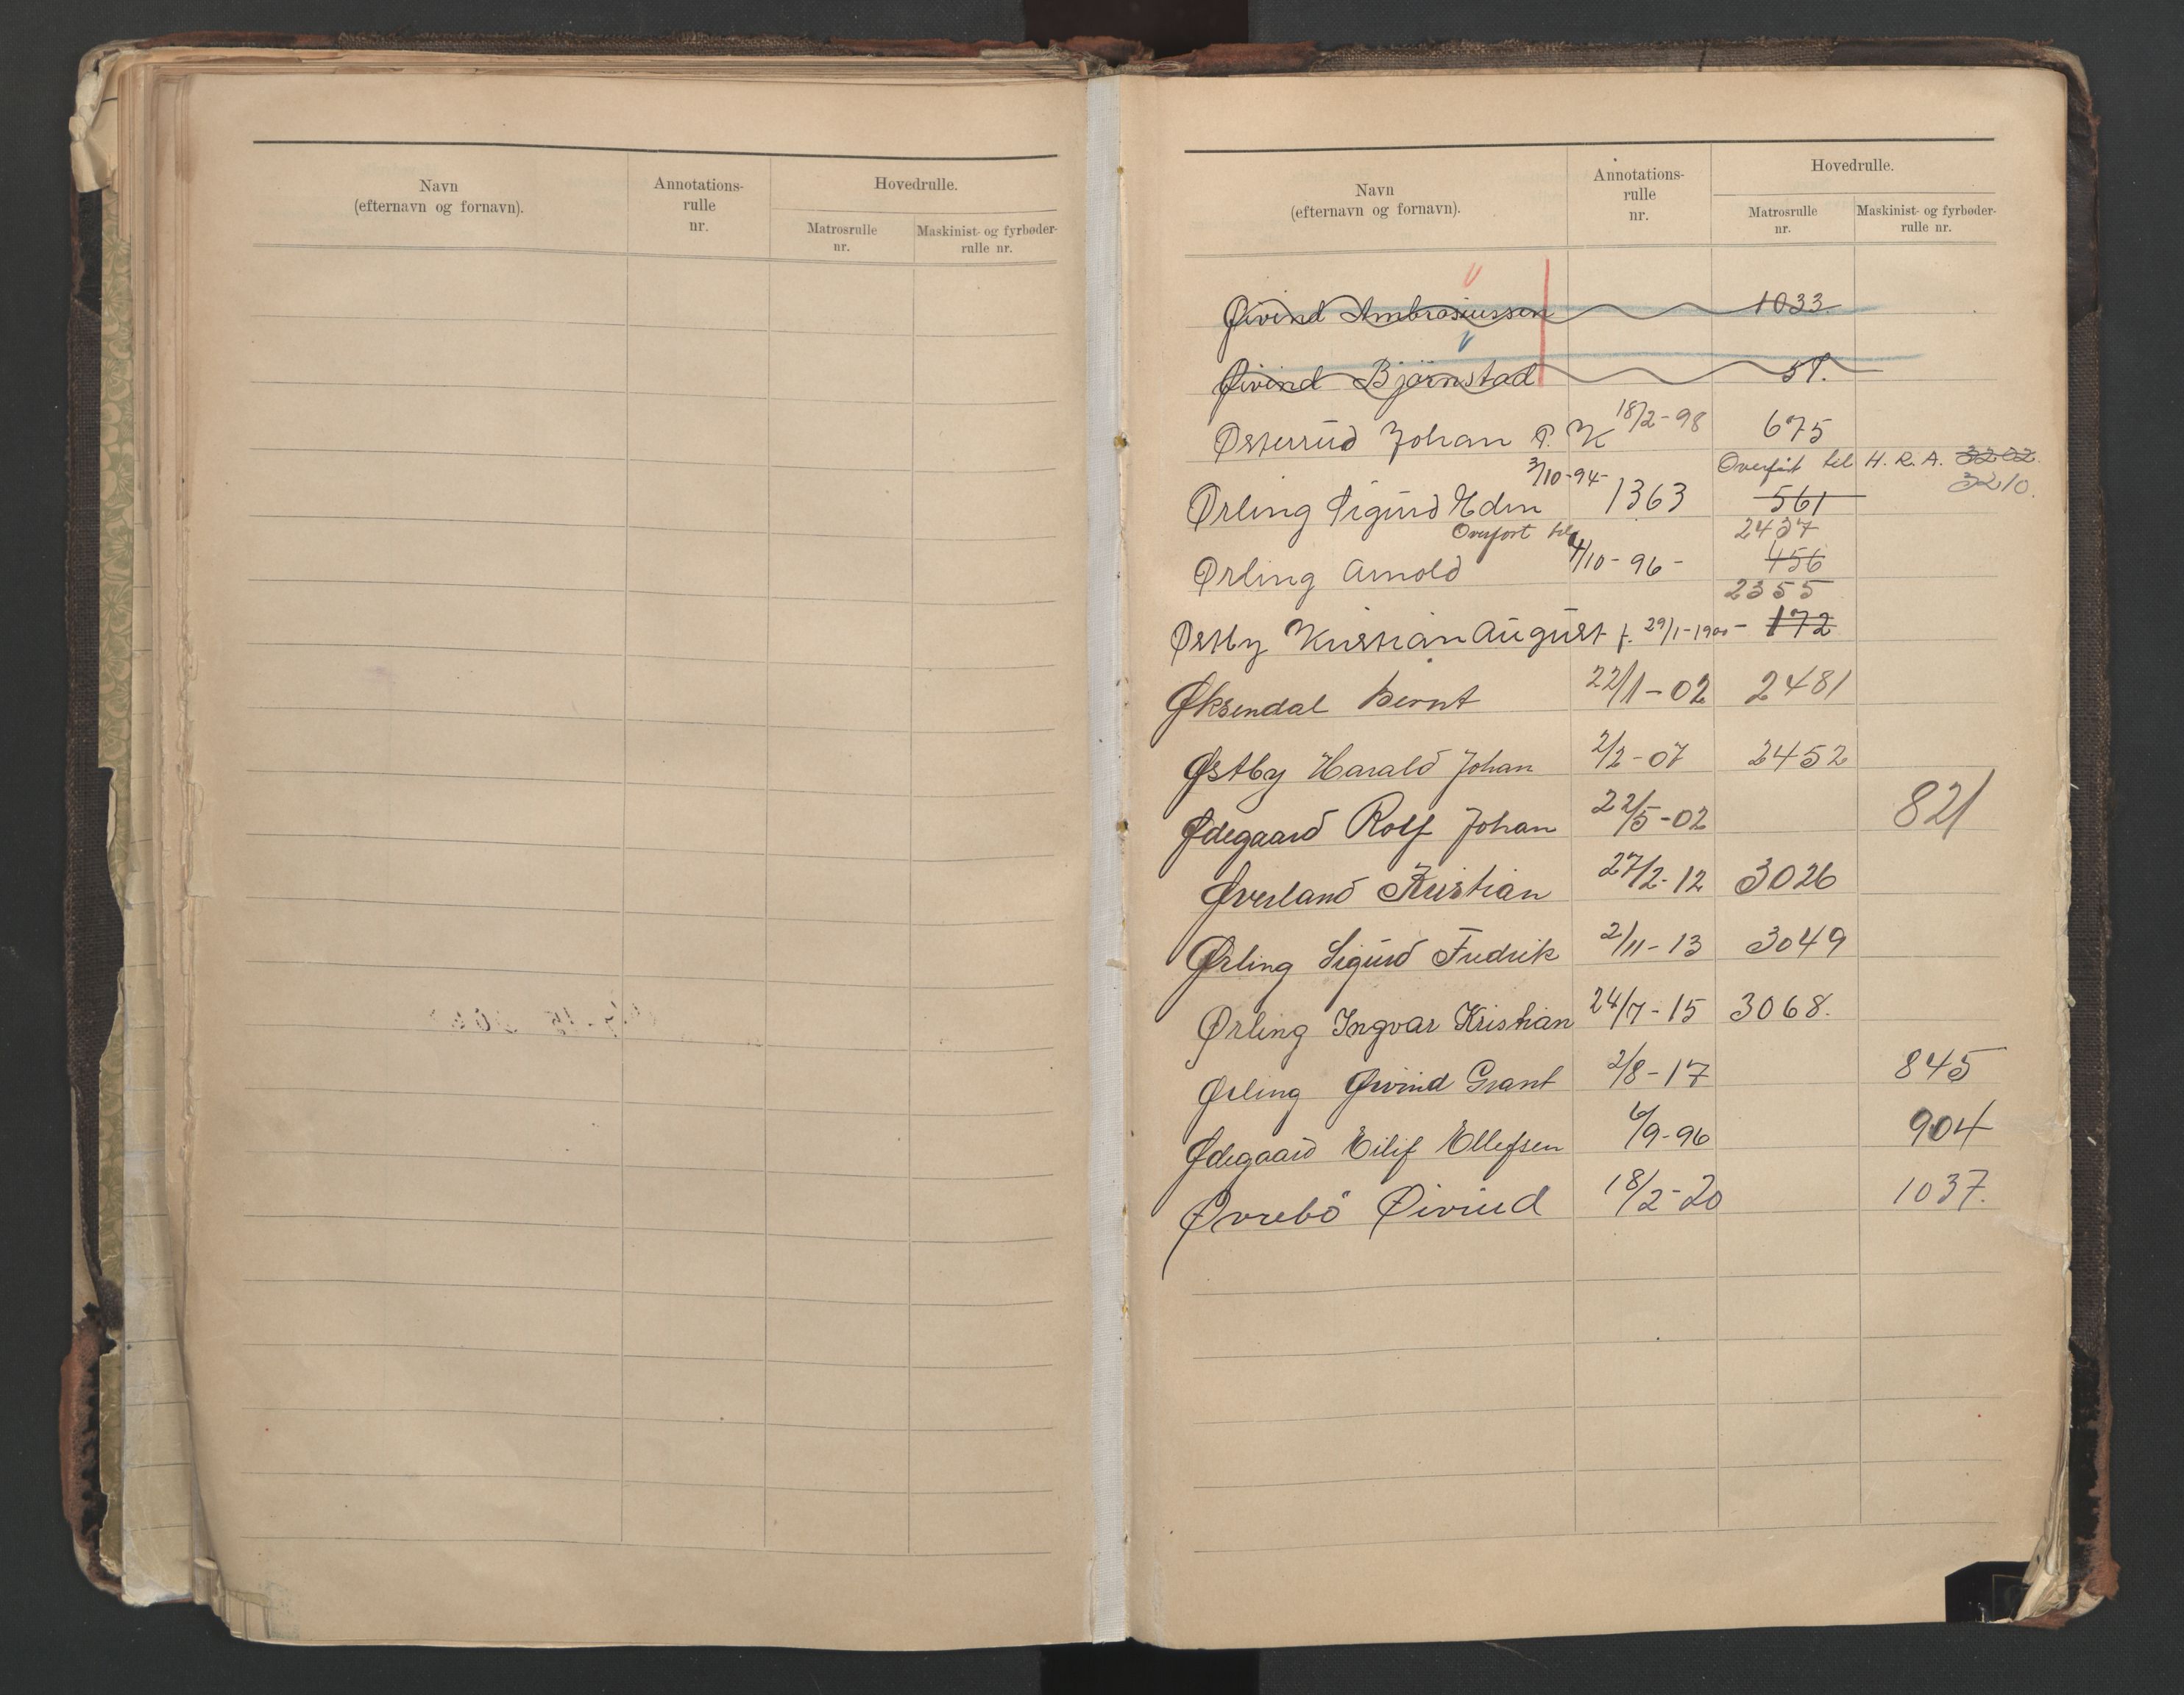 Navn
(efternavn og fornavn).
Annotations-
rulle
nr.
Hovedrulle.
Matrosrulle
nr.
Maskinist- og fyrbøder-
rulle nr.
Navn
(efternavn og fornavn).
Annotations-
rulle
nr.
Hovedrulle.
Matrosrulle
nr.
Maskinist- og fyrbøder-
rulle nr.
Øivind Ambrosiussen 1033.
Øivind Bjørnstad 51.
Østerrud Johan P. K 18/2-98 675
Overført til H. R. A. 3202.
3210.
3/10-94-
Ørling Sigurd Edin 1363 561
Overført til 2437
Ørling Arnold 4/10-96- 456
2355
Østby Kristian August f. 29/1-1900- 172
Øksendal Bernt 22/1-02 2481
Østby Harald Johan 2/2-07 2452
Ødegaard Rolf Johan 22/5-02 821
Øverland Kristian 27/2-12 3026
Ørling Sigurd Fredrik 2/11-13 3049
Ørling Ingvar Kristian 24/7-15 3068.
Ørling Øivind Grant 2/8-17 845
Ødegaard Eilif Ellefsen 6/9-96 904
Øvrebö Øivind 18/2-20 1037.